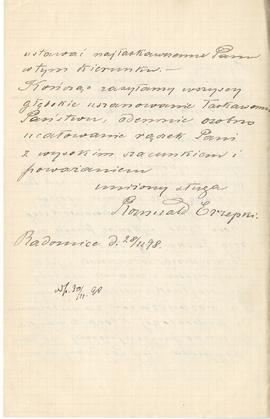 ustawać najłaskawszemu Panu
w tym kierunku. —
Kończąc zasyłamy wszyscy
głębokie uszanowanie Łaskawemu
Państwu, odemnie osobno
ucałowanie rączek Pani
z wysokim szacunkiem i
poważaniem
uniżony sługa
Romuald Erzepki.
Radomice d. 28/11 98.
30/11. 98